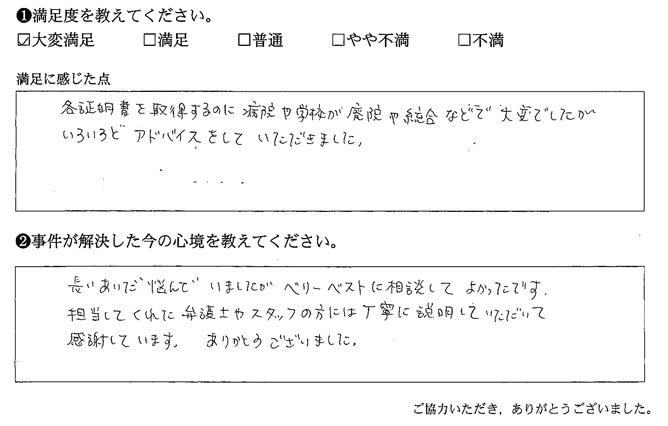 ❶満足度を教えてください。
☑大変満足 □満足 □普通 □やや不満 □不満
満足に感じた点
各証明書を取得するのに病院や学校が廃院や統合などで大変でしたが
いろいろとアドバイスをしていただきました。
❷事件が解決した今の心境を教えてください。
長いあいだ悩んでいましたがベリーベストに相談してよかったです。
担当してくれた弁護士やスタッフの方には丁寧に説明していただいて
感謝しています。ありがとうございました。
ご協力いただき、ありがとうございました。